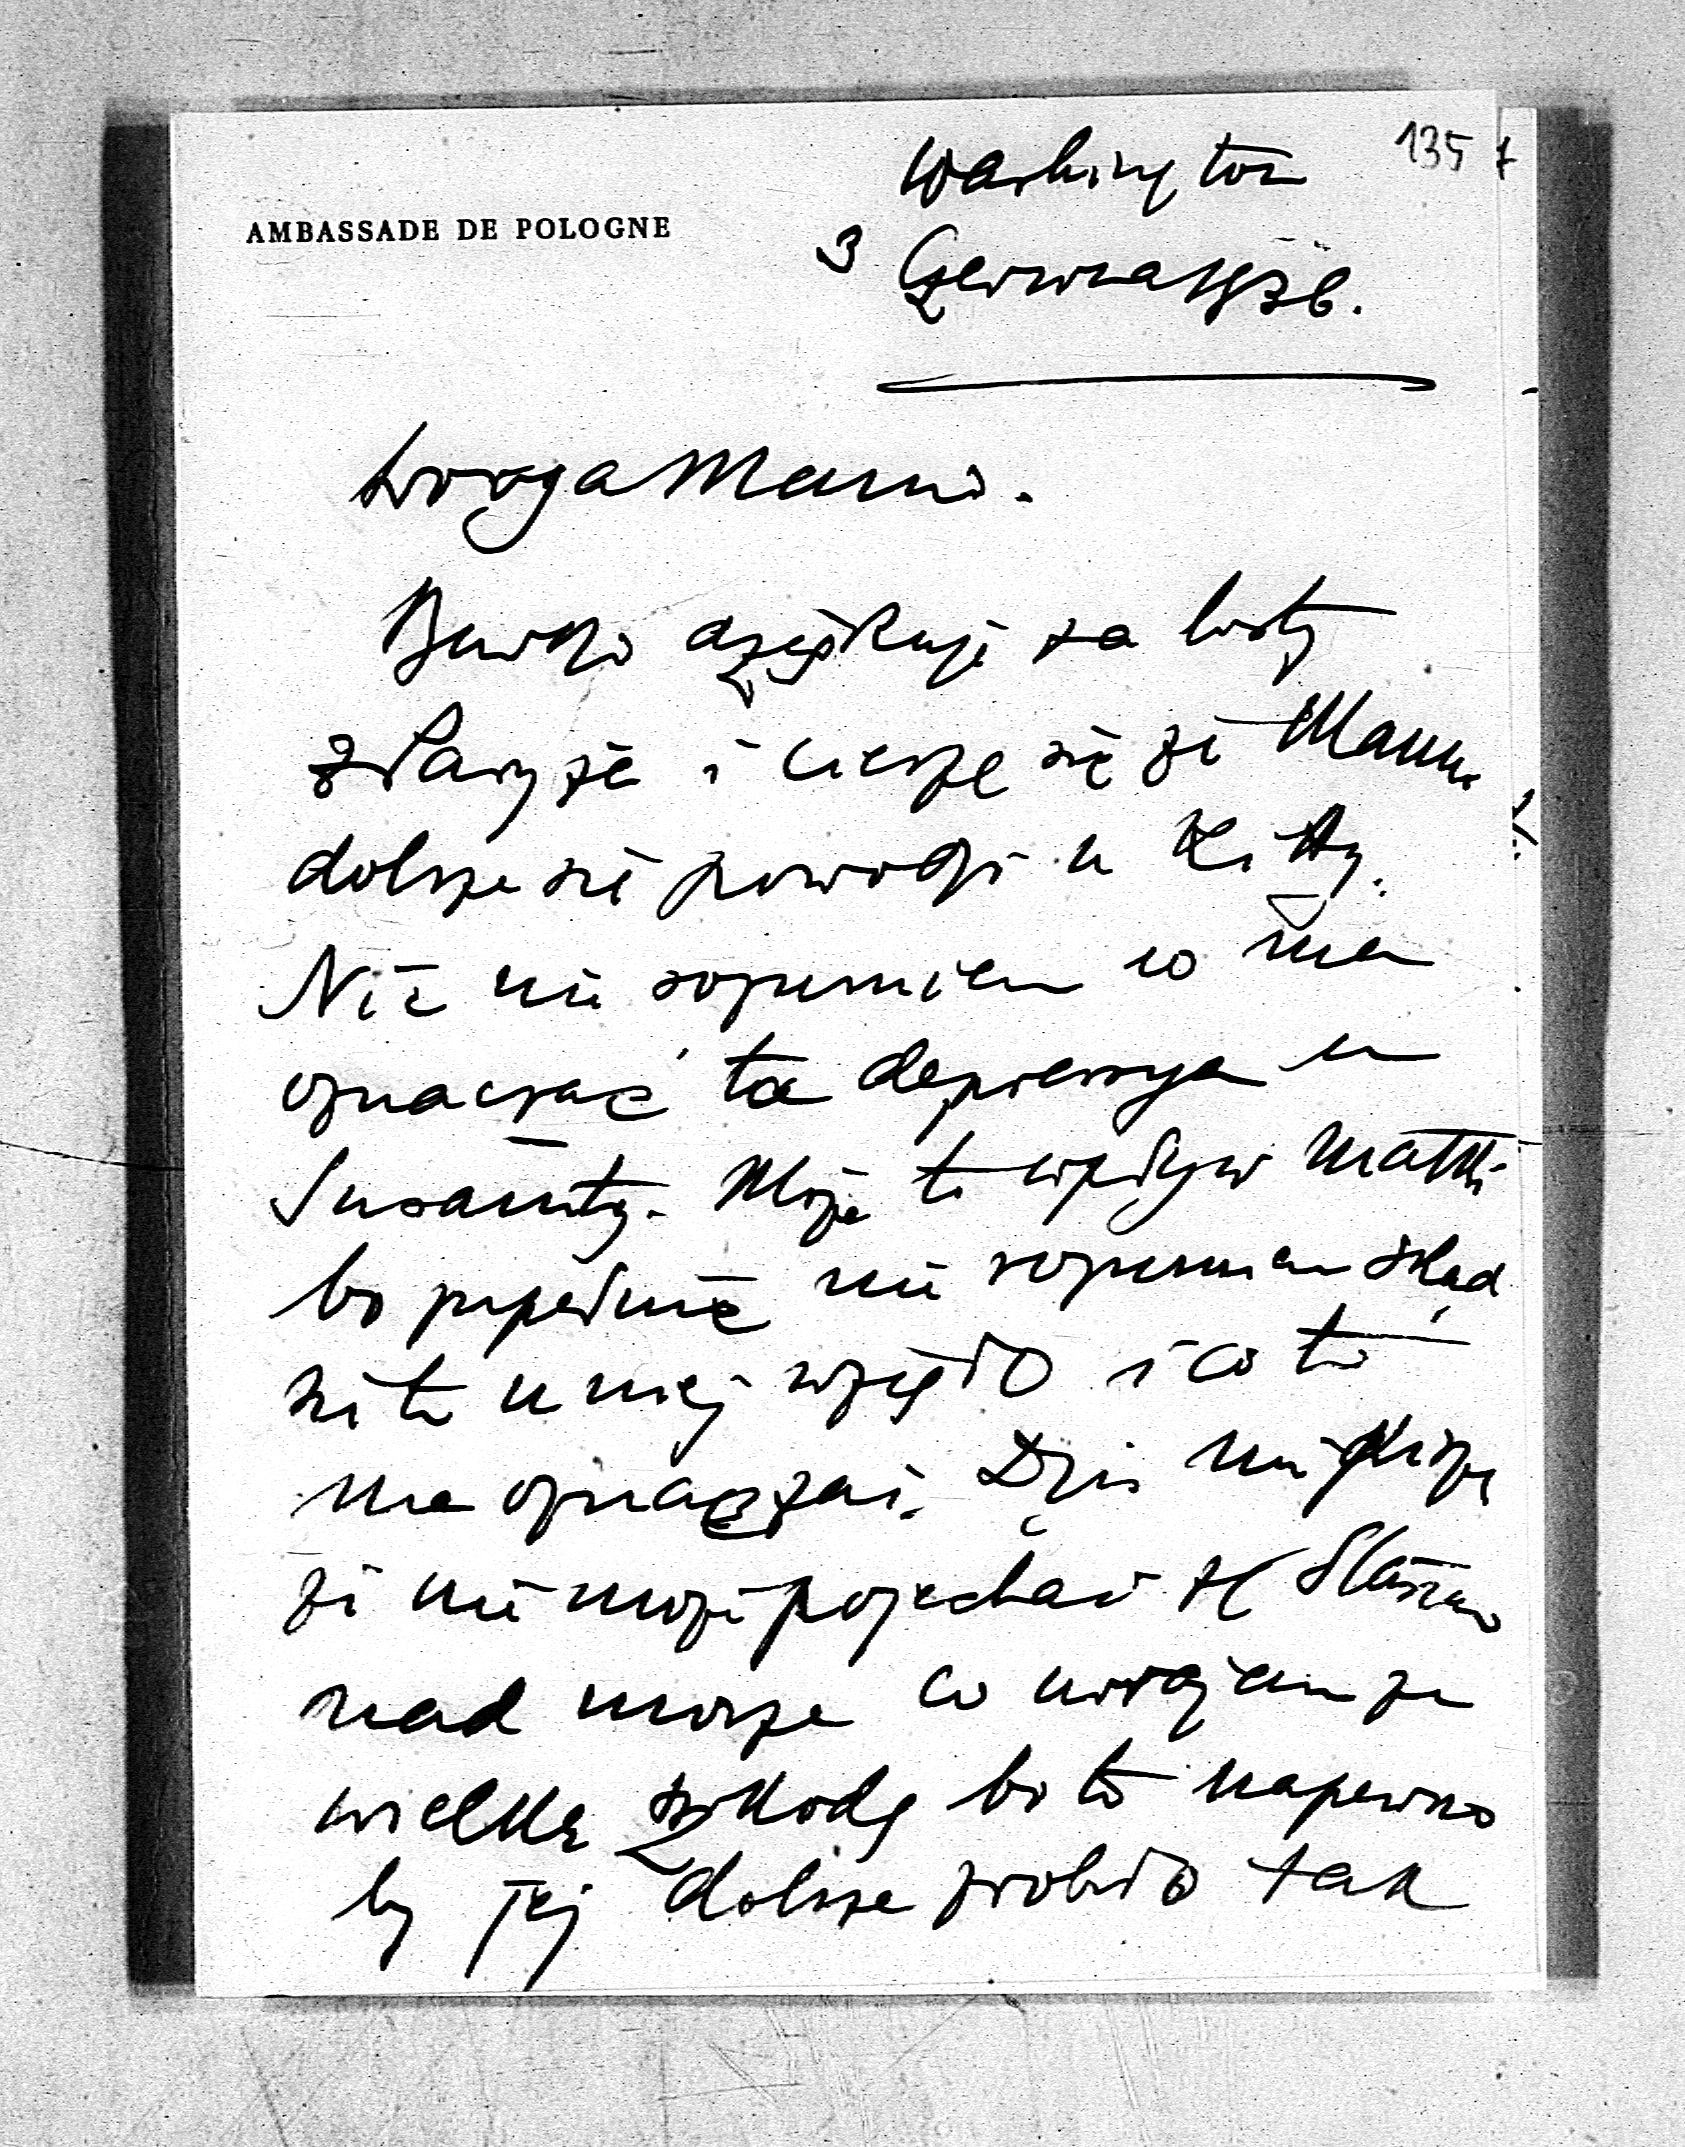 135
Washington
AMBASSADE DE POLOGNE
3 Czerwca 1936.
Droga Mamo.
Bardzo dziękuję za listy
z Paryża i cieszę się że Mamie
dobrze się powodzi u Kitty.
Nic nie rozumiem co ma
oznaczać ta depresya u
Susanity. Może to wpływ matki
bo zupełnie nie rozumiem skąd
się to u niej wzięło i co to
ma oznaczać. Dziś mi pisze
że nie może pojechać z Stasiem
nad morze co uważam za
wielką szkodę bo to napewno
by jej dobrze zrobiło tak